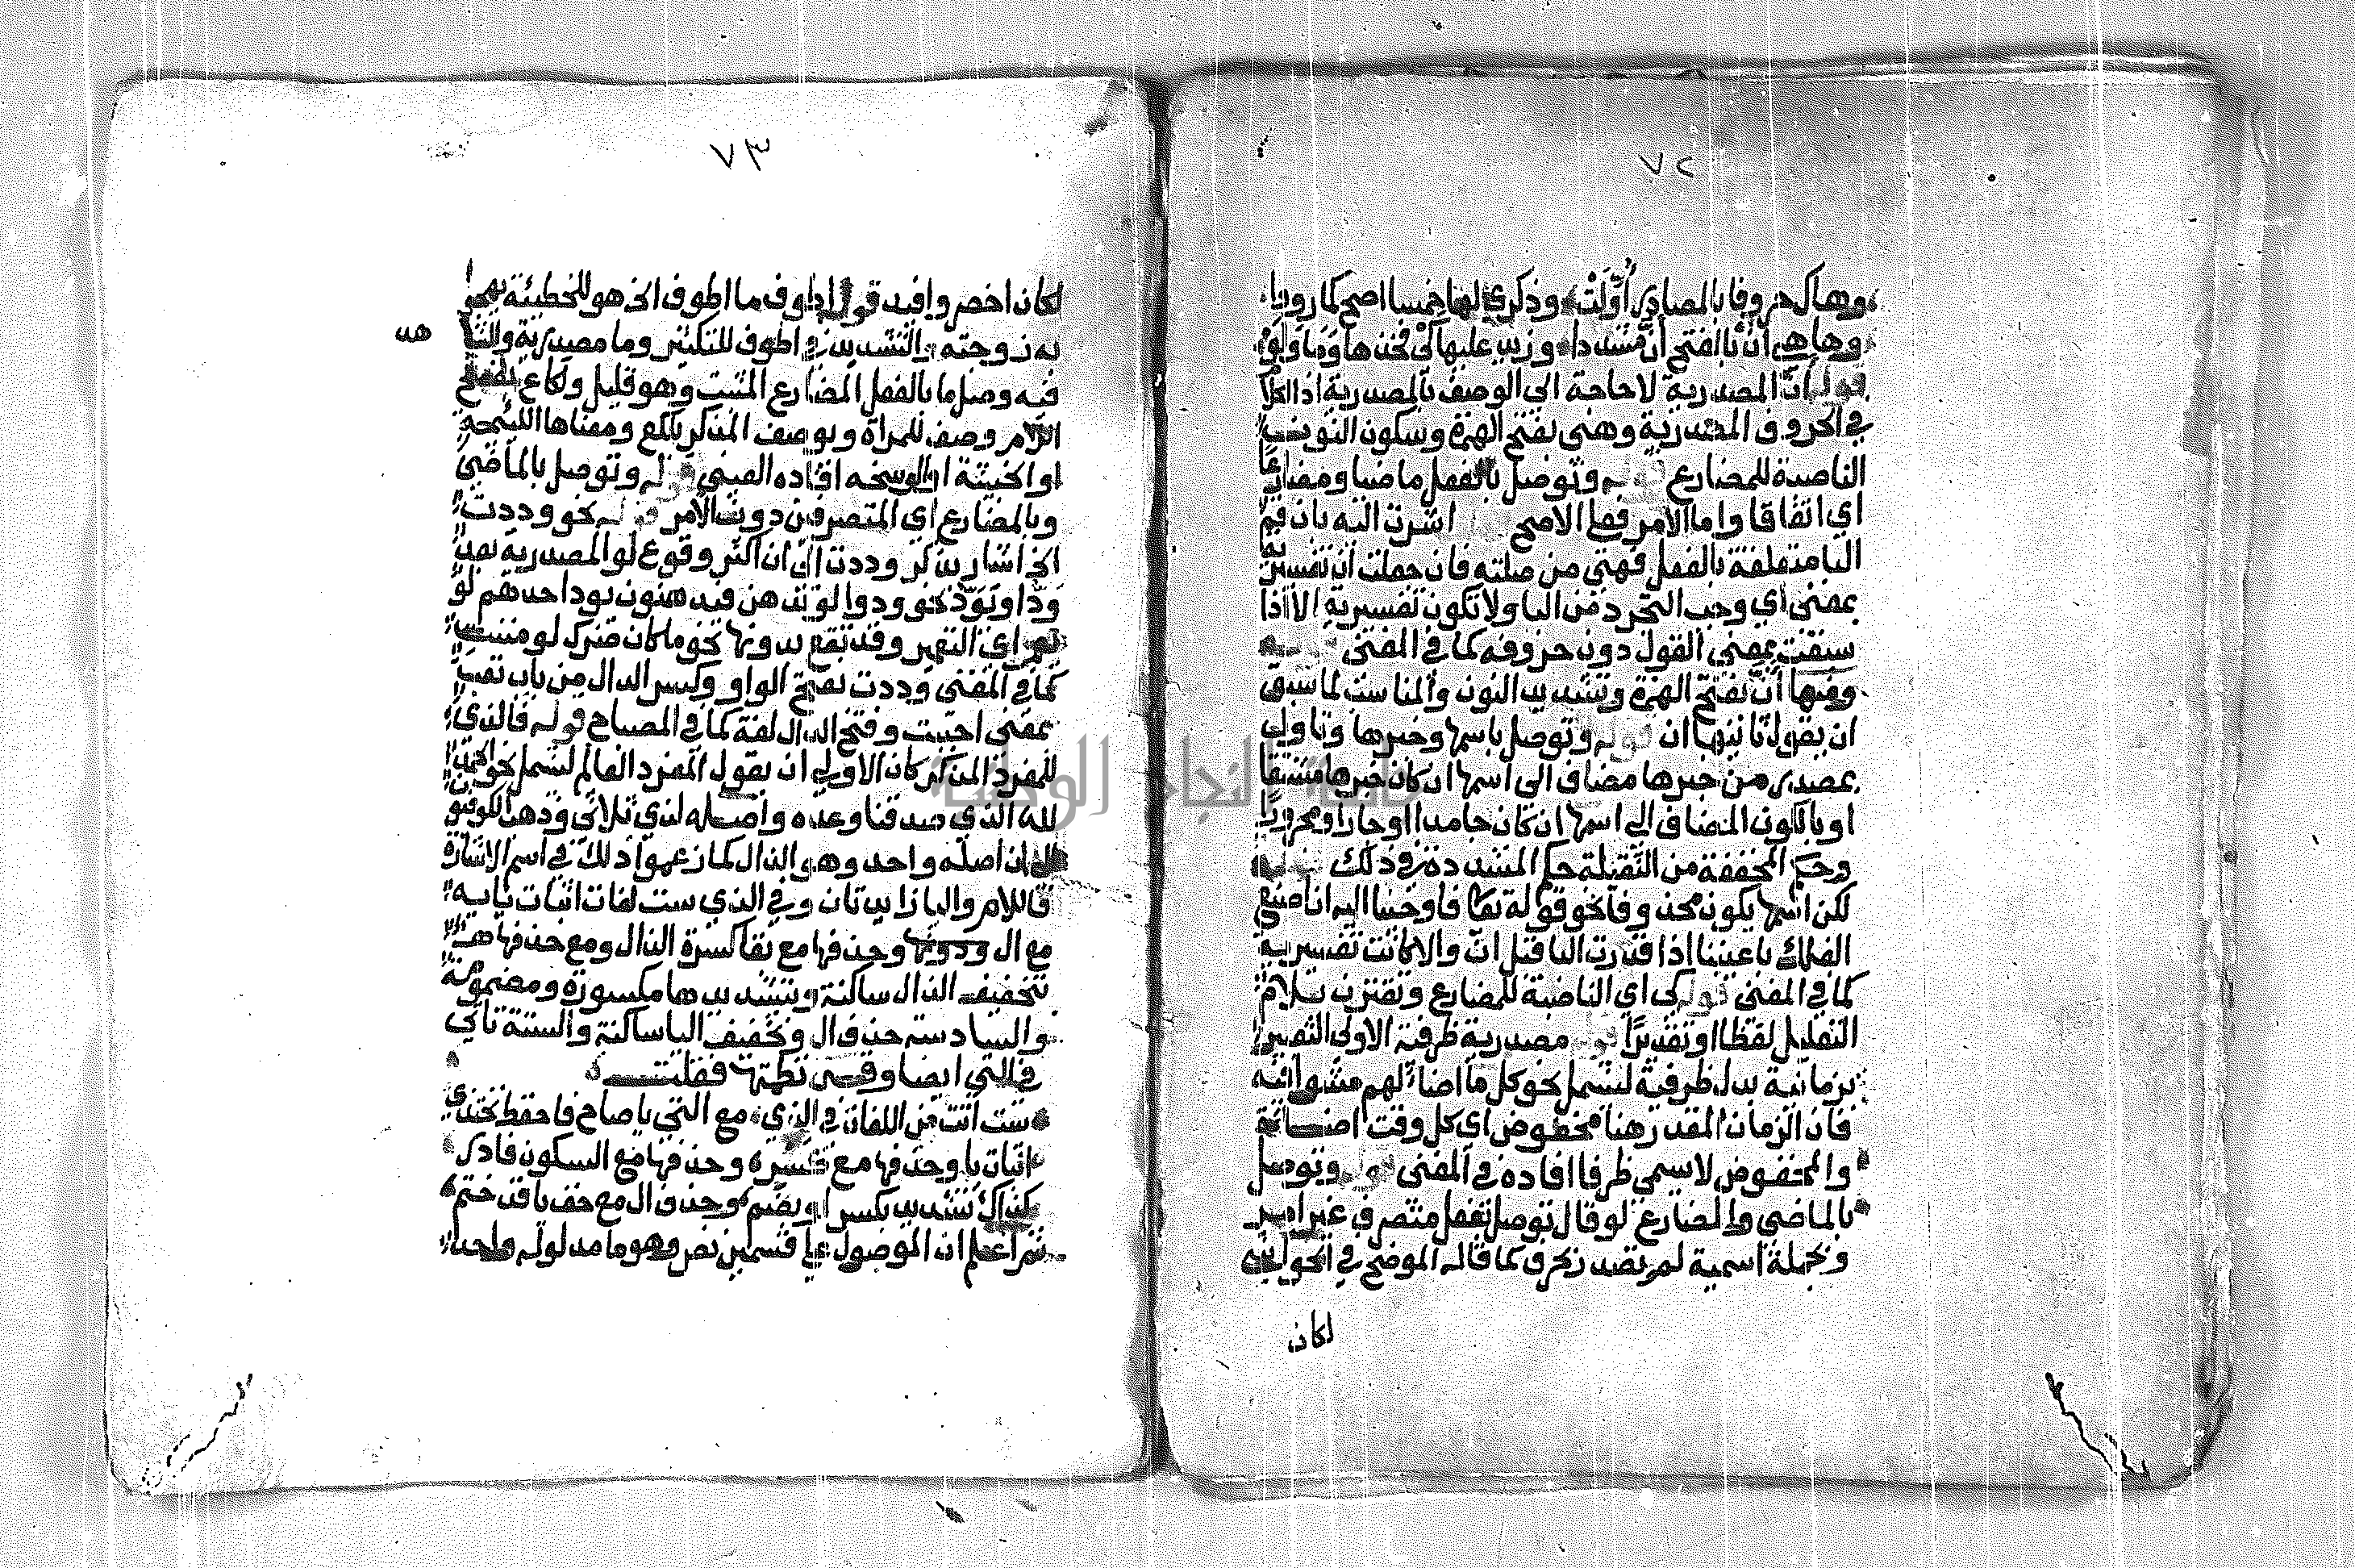 ٧٢
وهاك حروفا بالمصادر أُوِّلَتْ وذكري لها خمسا اصح كما رووا
وها هي أنْ بالفتح أنّ مشددا وزيد عليها كَيْ فخذها وَمَا وَلَوْ
قوله أنْ المصدرية لا حاجة الى الوصف بالمصدرية اذ الكلام
في الحروف المصدرية وهي بفتح الهمزة وسكون النون
الناصبة للمضارع قوله وتوصل بالفعل ماضيا ومضارعًا
اي اتفاقا واما الامر فعلى الاصح اشرت اليه بان قم
البا متعلقة بالفعل فهي من صلته فان جعلت ان تفسيرية
بمعنى اي وجب التجرد من البا ولا تكون تفسيرية الا اذا
سبقت بمعنى القول دون حروفه كما في المغني
ومنها أنّ بفتح الهمزة وتشديد النون والمناسب لما سبق
ان يقول ثانيها ان قوله وتوصل باسمها وخبرها وتاول
بمصدر من خبرها مضاف الى اسمها ان كان خبرها مشتقا
او بالكون المضاف الي اسمها ان كان جامدا او جارا ومجرورًا
وحكم المخففة من الثقيلة حكم المشددة في ذلك
لكن اسمها يكون محذوفا نحو قوله تعا فاوحينا اليه ان اصنع
الفلك باعيننا اذا قدرت البا قبل انّ والا كانت تفسيرية
كما في المغني قوله كى اي الناصبة للمضارع وتقترن بلام
التعليل لفظا او تقديرًا قوله مصدرية ظرفية الاولى التعبير
بزمانية بدل ظرفية لتشمل نحو كل ما اضا لهم مشوا فيه
فان الزمان المقدر هنا مخفوض اي كل وقت اضاءة
والمخفوض لا يسمى ظرفا افاده في المغني قوله وتوصل
بالماضي والمضارع لو قال توصل بفعل متصرف غير امر
وبجملة اسمية لم تصدر بحرف كما قاله الموضح في الحواشي
لكان
٧٣
لكان اخصر وافيد قوله اطوف ما اطوف الخ هو للحطيئة يهجو
به زوجته والتشديد في اطوف للتكثير وما مصدرية
فيه وصل ما بالفعل المضارع المثبت وهو قليل ولكاع بفتح
اللام وصف للمراة ويوصف المذكر بلكع ومعناها اللئيمة
او الخبيثة او الوسخه افاده العيني قوله وتوصل بالماضي
وبالمضارع اي المتصرفين دون الامر قوله نحو وددت
الخ اشار بذكر وددت الى ان اكثر وقوع لو المصدرية بعد
وَدّ او يَوَدّ نحو ودوا لو تدهن فيدهنون يود احدهم لو
يعمر اي التعمير وقد تقع بدونها نحو ما كان ضرك لو مننت
كما في المغني وددت بفتح الواو وكسر الدال من باب تعب
بمعنى احببت وفتح الدال لغة كما في المصباح قوله فالذي
للمفرد المذكر كان الاولى ان يقول المفرد العالم لتشمل نحو الحمد
لله الذي صدقنا وعده واصله لذي ثلاثى وذهب الكوفيون
الى ان اصله واحد وهو الذال كما زعموا ذلك في اسم الاشارة
فاللام واليا زايدتان وفي الذي ست لغات اثبات يايه
مع ال ودونها وحذفها مع بقا كسرة الذال ومع حذفها
بتخفيف الذال ساكنة وتشديدها مكسورة ومضمومة
والسادسة حذف ال وتخفيف اليا ساكنة والستة تاتي
في التي ايضا وقد نظمتها فقلت
ست اتت من اللغات في الذي مع التي يا صاح فاحفظ تحتذي
اثبات يا وحذفها مع كسرة وحذفها مع السكون فادر
كذاك تشديد بكسر او بضم وحذف ال مع خف يا قد ختم
ثم اعلم ان الموصول على قسمين نص وهو ما مدلوله واحد